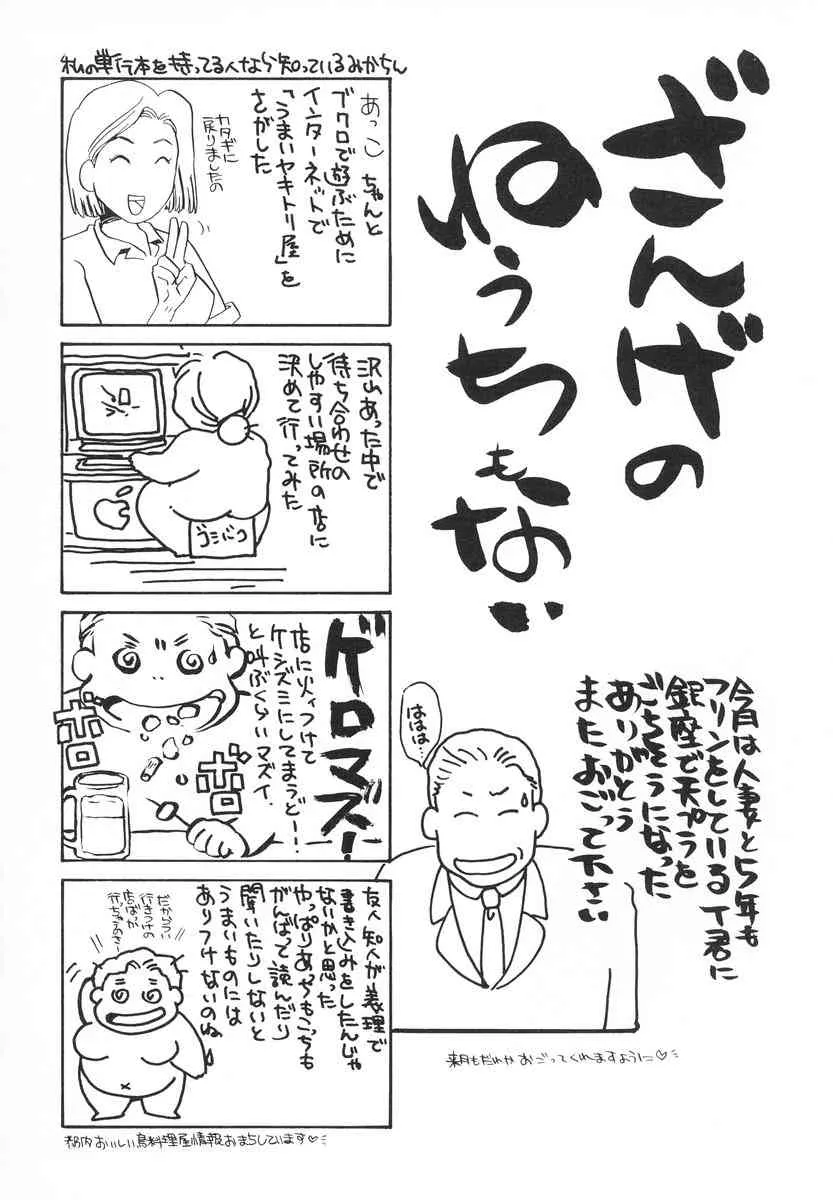 ざんげの
ねうちもない
今月は人妻と5年も
フリンをしているT君に
銀座で天プラを
ごちそうになった
ありがとう
またおごって下さい
ははは…
来月もだれかおごってくれますように♡
私の単行本を持ってる人なら知っているみかちん
あっこちゃんと
ブクロで遊ぶために
インターネットで
「うまいヤキトリ屋」を
さがした
カタギに
戻りましたの
沢山あった中で
待ち合わせの
しやすい場所の店に
決めて行ってみた
ゴミバコ
ゲロマズ!
店に火ィつけて
ケシズミにしてまうど―!!
と叫ぶくらいマズイ.
ボロ
ボロ
友人知人が義理で
書き込みをしたんじゃ
ないかと思った
やっぱりあっちもこっちも
がんばって読んだり
聞いたりしないと
うまいものには
ありつけないのね
だからつい
行きつけの
店ばっか
行っちゃうのさー
都内おいしい鳥料理屋情報おまちしています♡